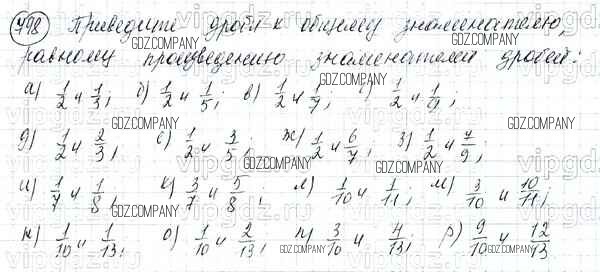 798 Приведите дроби к общему знаменателю,
равному произведению знаменателей дробей:
а) 1/2 и 1/3; б) 1/2 и 1/5; в) 1/2 и 1/7; г) 1/2 и 1/9;
д) 1/2 и 2/3; е) 1/2 и 3/5; ж) 1/2 и 6/7; з) 1/2 и 7/9;
и) 1/7 и 1/8; к) 3/7 и 5/8; л) 1/10 и 1/11; м) 3/10 и 10/11;
н) 1/10 и 1/13; о) 1/10 и 2/13; п) 3/10 и 4/13; р) 9/10 и 12/13